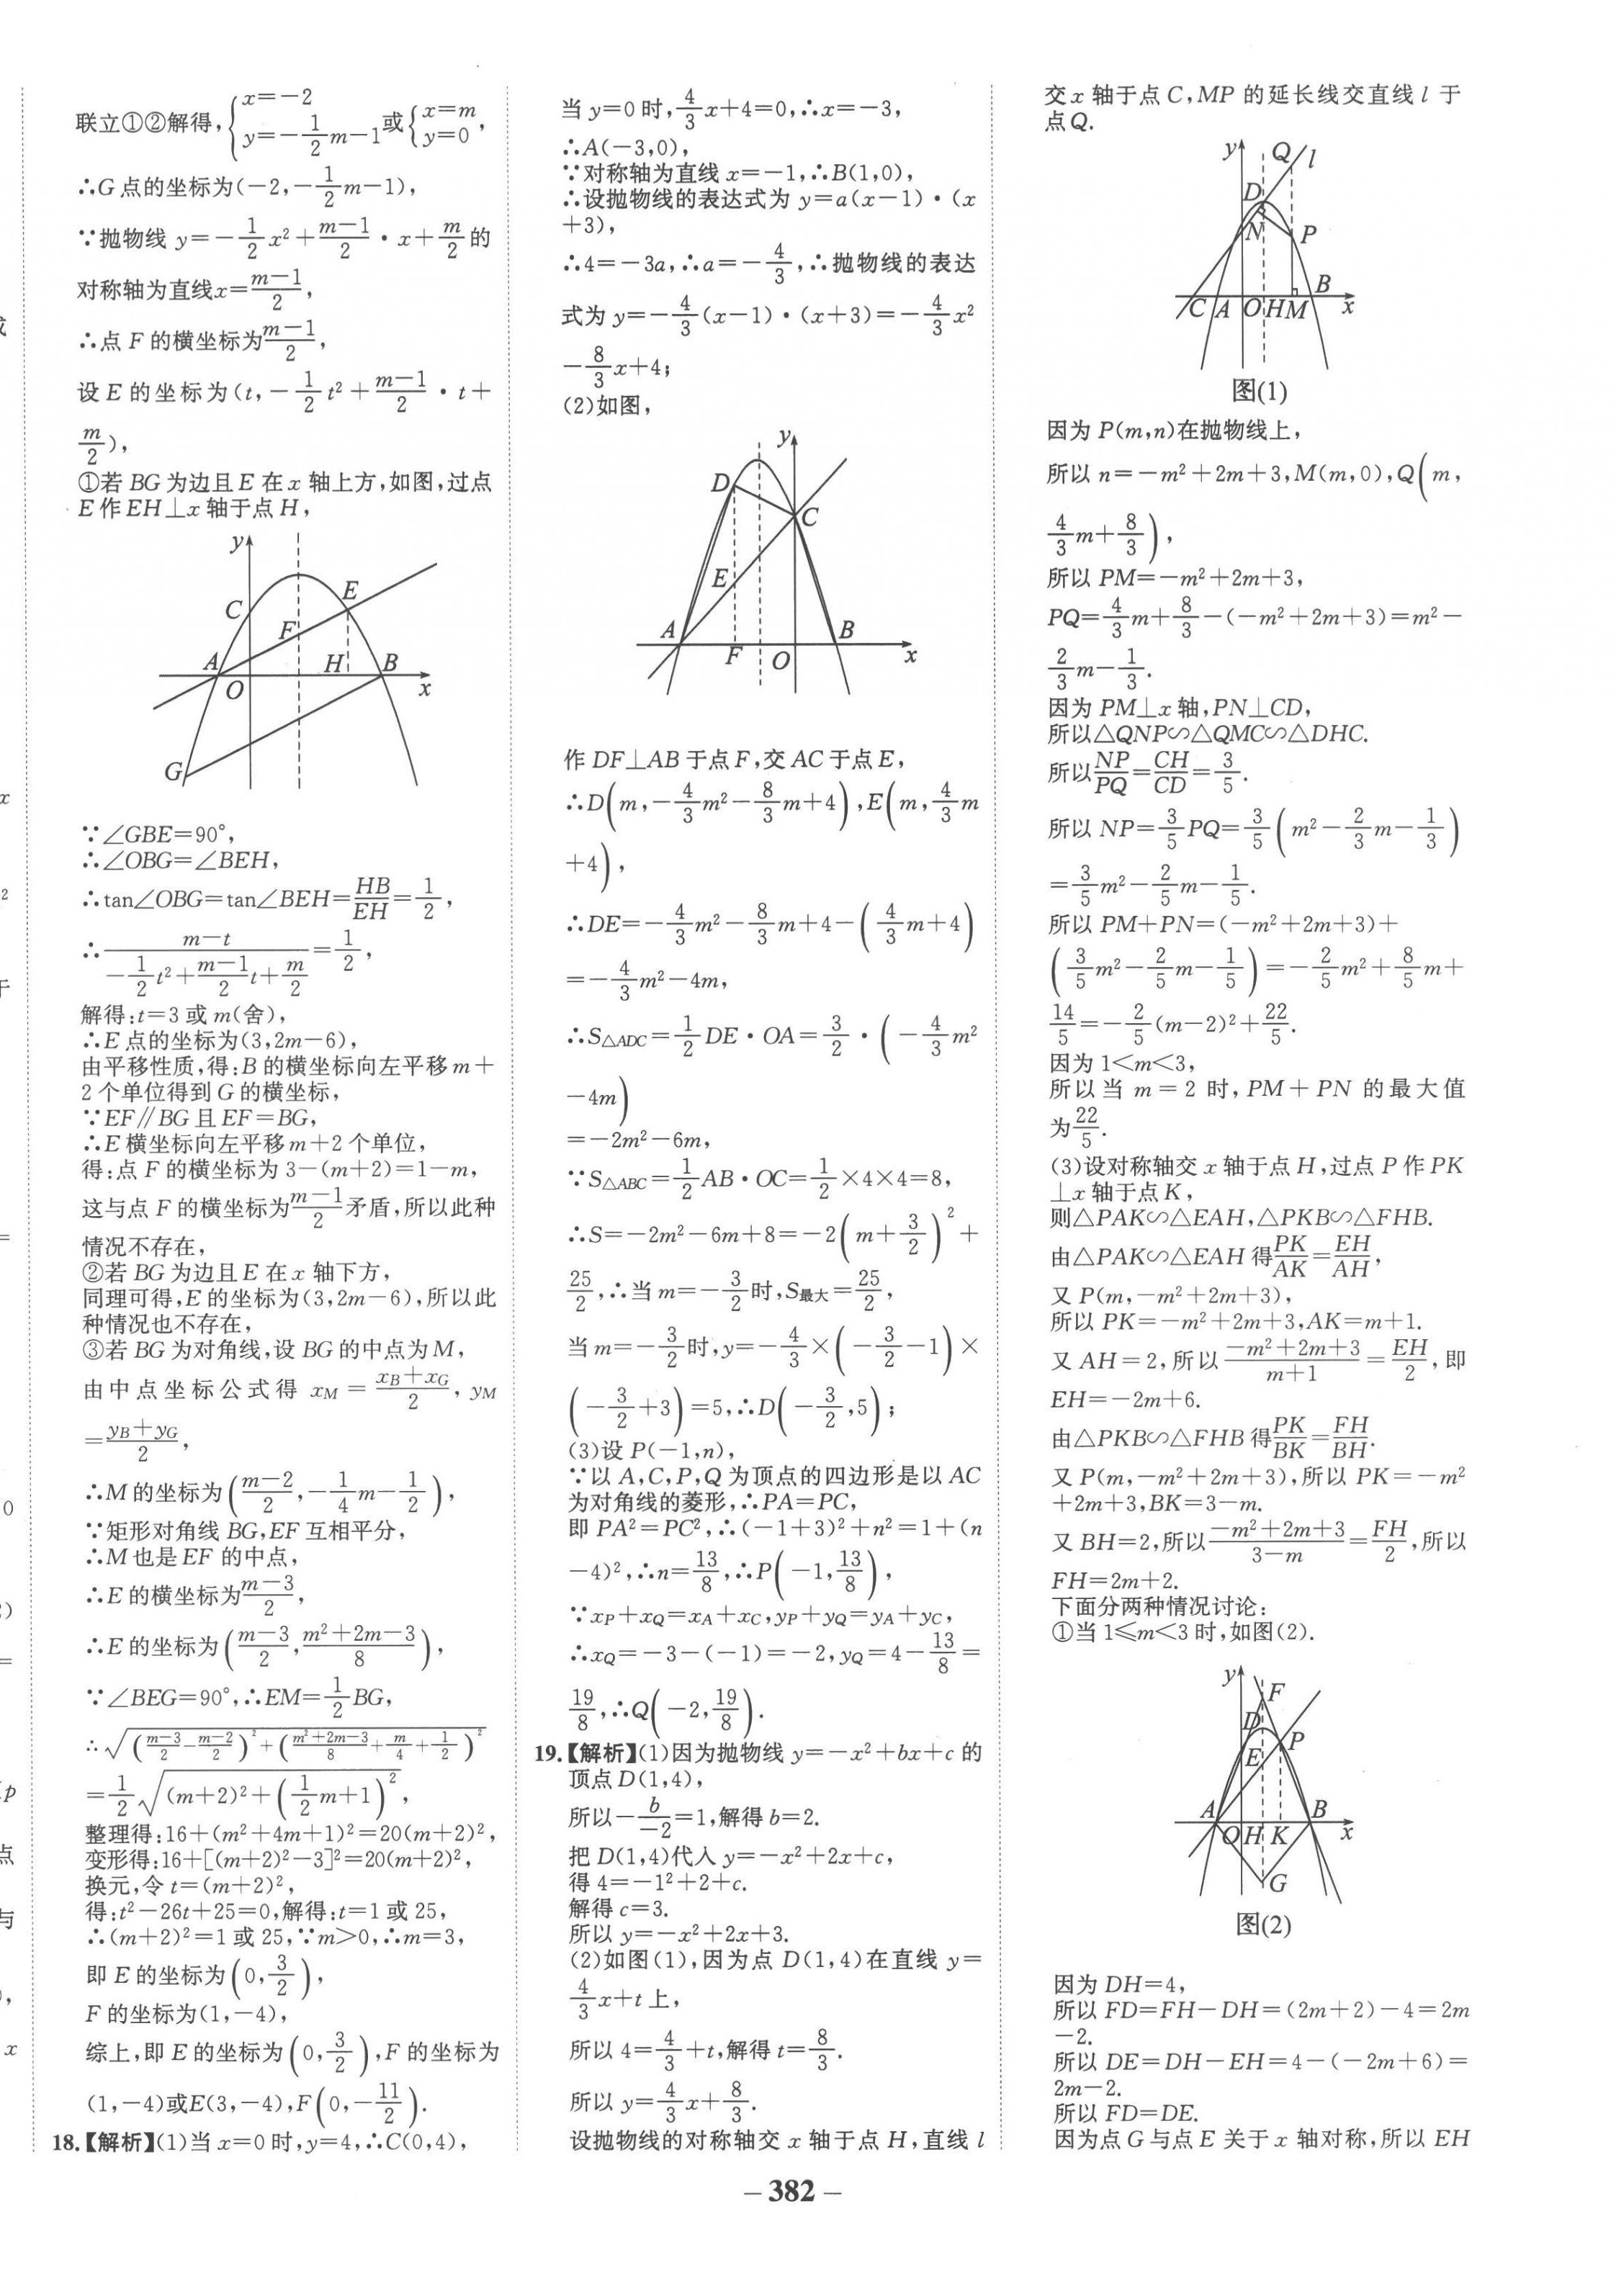 联立①②解得,{x=-2 y=-1/2m-1或{x=m y=0,
∴G点的坐标为(-2,-1/2m-1),
∵抛物线 y=-1/2x²+(m-1)/2·x+m/2的
对称轴为直线x=(m-1)/2,
∴点F的横坐标为(m-1)/2,
设E的坐标为(t,-1/2t²+(m-1)/2·t+
m/2),
①若BG为边且E在x轴上方,如图,过点
E作EH⊥x轴于点H,
y
E
C
F
A
H
B
O
x
G
∵∠GBE=90°,
∴∠OBG=∠BEH,
∴tan∠OBG=tan∠BEH=HB/EH=1/2,
∴(m-t)/(-1/2t²+(m-1)/2t+m/2)=1/2,
解得:t=3或m(舍),
∴E点的坐标为(3,2m-6),
由平移性质,得:B的横坐标向左平移m+
2个单位得到G的横坐标,
∵EF∥BG且EF=BG,
∴E横坐标向左平移m+2个单位,
得:点F的横坐标为3-(m+2)=1-m,
这与点F的横坐标为(m-1)/2矛盾,所以此种
情况不存在,
②若BG为边且E在x轴下方,
同理可得,E的坐标为(3,2m-6),所以此
种情况也不存在,
③若BG为对角线,设BG的中点为M,
由中点坐标公式得 x_M=(x_B+x_G)/2,y_M
=(y_B+y_G)/2,
∴M的坐标为((m-2)/2,-1/4m-1/2),
∵矩形对角线BG,EF互相平分,
∴M也是EF的中点,
∴E的横坐标为(m-3)/2,
∴E的坐标为((m-3)/2,(m²+2m-3)/8),
∵∠BEG=90°,∴EM=1/2BG,
∴√(((m-3)/2-(m-2)/2)²+((m²+2m-3)/8+m/4+1/2)²)
=1/2√((m+2)²+(1/2m+1)²),
整理得:16+(m²+4m+1)²=20(m+2)²,
变形得:16+[(m+2)²-3]²=20(m+2)²,
换元,令t=(m+2)²,
得:t²-26t+25=0,解得:t=1或25,
∴(m+2)²=1或25,∵m>0,∴m=3,
即E的坐标为(0,3/2),
F的坐标为(1,-4),
综上,即E的坐标为(0,3/2),F的坐标为
(1,-4)或E(3,-4),F(0,-11/2).
18.【解析】(1)当x=0时,y=4,∴C(0,4),
当y=0时,4/3x+4=0,∴x=-3,
∴A(-3,0),
∵对称轴为直线x=-1,∴B(1,0),
∴设抛物线的表达式为y=a(x-1)·(x
+3),
∴4=-3a,∴a=-4/3,∴抛物线的表达
式为y=-4/3(x-1)·(x+3)=-4/3x²
-8/3x+4;
(2)如图,
y
D
C
E
A
B
F
O
x
作DF⊥AB于点F,交AC于点E,
∴D(m,-4/3m²-8/3m+4),E(m,4/3m
+4),
∴DE=-4/3m²-8/3m+4-(4/3m+4)
=-4/3m²-4m,
∴S△ADC=1/2DE·OA=3/2·(-4/3m²
-4m)
=-2m²-6m,
∵S△ABC=1/2AB·OC=1/2×4×4=8,
∴S=-2m²-6m+8=-2(m+3/2)²+
25/2,∴当m=-3/2时,S最大=25/2,
当m=-3/2时,y=-4/3×(-3/2-1)×
(-3/2+3)=5,∴D(-3/2,5);
(3)设P(-1,n),
∵以A,C,P,Q为顶点的四边形是以AC
为对角线的菱形,∴PA=PC,
即PA²=PC²,∴(-1+3)²+n²=1+(n
-4)²,∴n=13/8,∴P(-1,13/8),
∵x_P+x_Q=x_A+x_C,y_P+y_Q=y_A+y_C,
∴x_Q=-3-(-1)=-2,y_Q=4-13/8=
19/8,∴Q(-2,19/8).
19.【解析】(1)因为抛物线y=-x²+bx+c的
顶点D(1,4),
所以-b/-2=1,解得b=2.
把D(1,4)代入y=-x²+2x+c,
得4=-1²+2+c.
解得c=3.
所以y=-x²+2x+3.
(2)如图(1),因为点D(1,4)在直线y=
4/3x+t上,
所以4=4/3+t,解得t=8/3.
所以y=4/3x+8/3.
设抛物线的对称轴交x轴于点H,直线l
交x轴于点C,MP的延长线交直线l于
点Q.
y
Q
l
D
N
P
B
C
A
O
H
M
x
图(1)
因为P(m,n)在抛物线上,
所以n=-m²+2m+3,M(m,0),Q(m,
4/3m+8/3),
所以PM=-m²+2m+3,
PQ=4/3m+8/3-(-m²+2m+3)=m²-
2/3m-1/3.
因为PM⊥x轴,PN⊥CD,
所以△QNP∽△QMC∽△DHC.
所以NP/PQ=CH/CD=3/5.
所以NP=3/5PQ=3/5(m²-2/3m-1/3)
=3/5m²-2/5m-1/5.
所以PM+PN=(-m²+2m+3)+
(3/5m²-2/5m-1/5)=-2/5m²+8/5m+
14/5=-2/5(m-2)²+22/5.
因为1<m<3,
所以当m=2时,PM+PN的最大值
为22/5.
(3)设对称轴交x轴于点H,过点P作PK
⊥x轴于点K,
则△PAK∽△EAH,△PKB∽△FHB.
由△PAK∽△EAH得PK/AK=EH/AH,
又P(m,-m²+2m+3),
所以PK=-m²+2m+3,AK=m+1.
又AH=2,所以(-m²+2m+3)/(m+1)=EH/2,即
EH=-2m+6.
由△PKB∽△FHB得PK/BK=FH/BH.
又P(m,-m²+2m+3),所以PK=-m²
+2m+3,BK=3-m.
又BH=2,所以(-m²+2m+3)/(3-m)=FH/2,所以
FH=2m+2.
下面分两种情况讨论:
①当1≤m<3时,如图(2).
y
F
D
P
E
A
B
O
H
K
x
G
图(2)
因为DH=4,
所以FD=FH-DH=(2m+2)-4=2m
-2.
所以DE=DH-EH=4-(-2m+6)=
2m-2.
所以FD=DE.
因为点G与点E关于x轴对称,所以EH
-382-